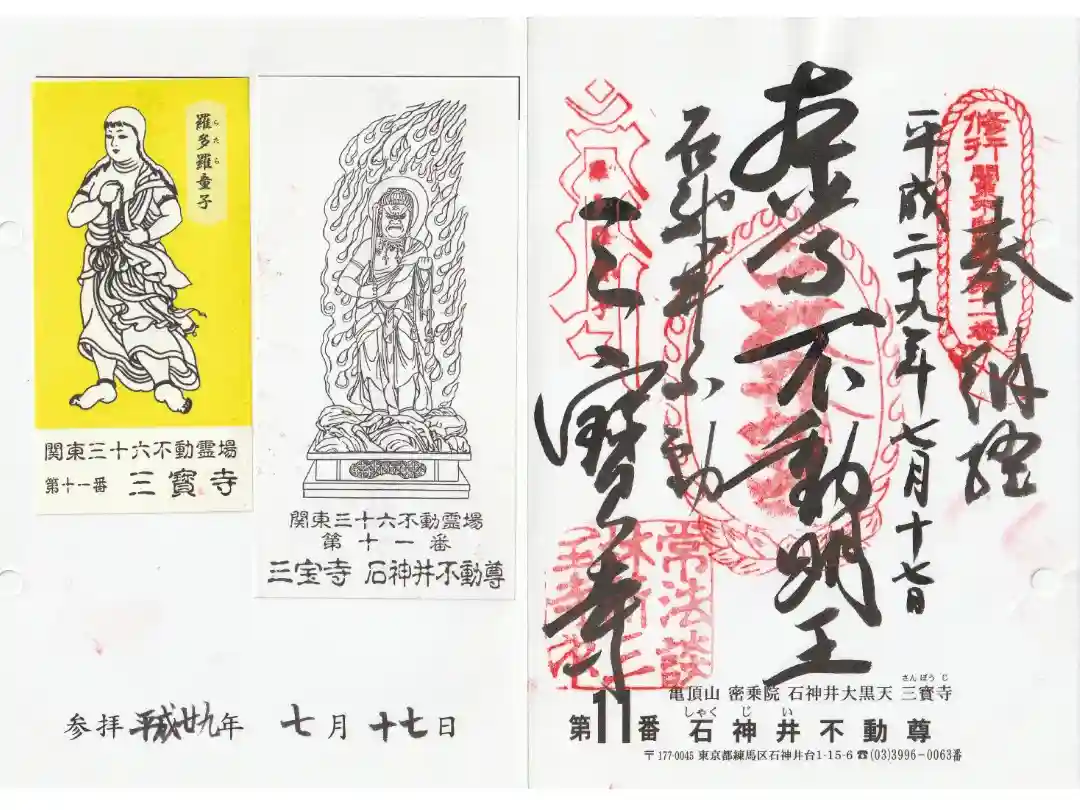 羅多羅童子
らたら
関東三十六不動霊場
第十一番 三寳寺
関東三十六不動霊場
第十一番
三宝寺 石神井不動尊
参拝 平成廿九年 七月 十七日
奉納経
平成二十九年七月十七日
本尊 不動明王
石神井不動
三寳寺
さんぽうじ
亀頂山 密乗院 石神井大黒天 三寳寺
しゃくじい
第11番 石神井不動尊
〒177-0045 東京都練馬区石神井台1-15-6 ☎(03)3996-0063番